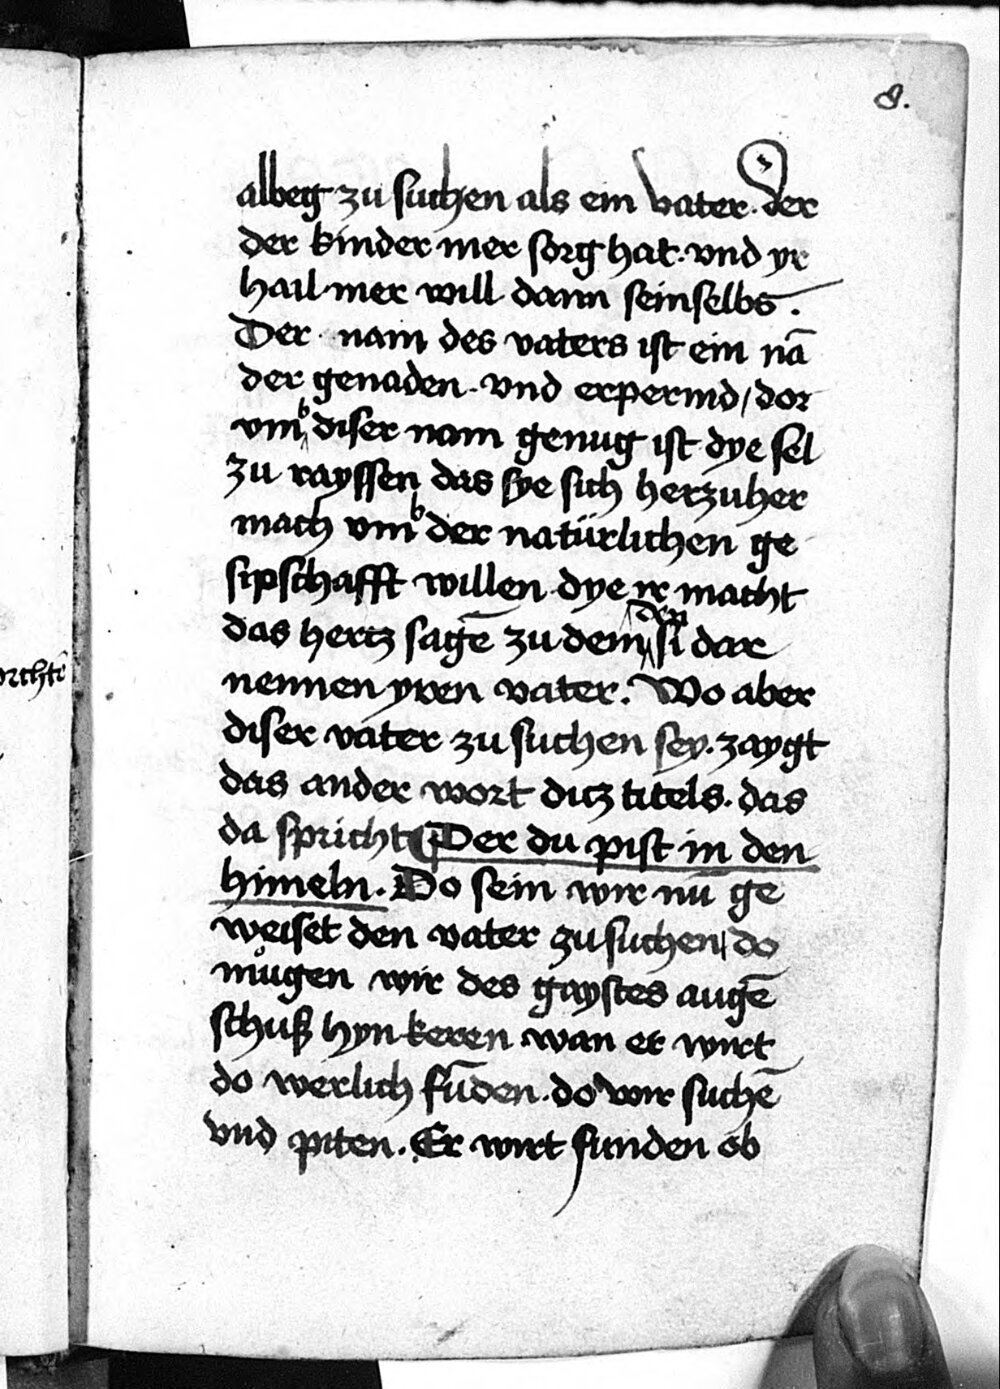 8.
albeg zu suchen als ein vater. der
der kinder mer sorg hat. vnd yr
hail mer will dann seinselbs.
Der nam des vaters ist ein nā
der genaden. vnd erpermd / dor
vmb diser nam genug ist dye sel
zu rayssen das sye sich herzuher
mach vmb der natürlichen ge
sipschafft willen dye ir macht
das hertz sagē zu dem den si dar
nennen yren vater. Wo aber
diser vater zu suchen sey. zaygt
das ander wort ditz titels. das
da spricht Der du pist in den
himeln. Do sein wir nu ge
weiset den vater zu suchen / do
můgen wir des gaystes augē
schuß hyn keren wan er wirt
do werlich fūden. do wir suchē
vnd piten. Er wirt funden ob